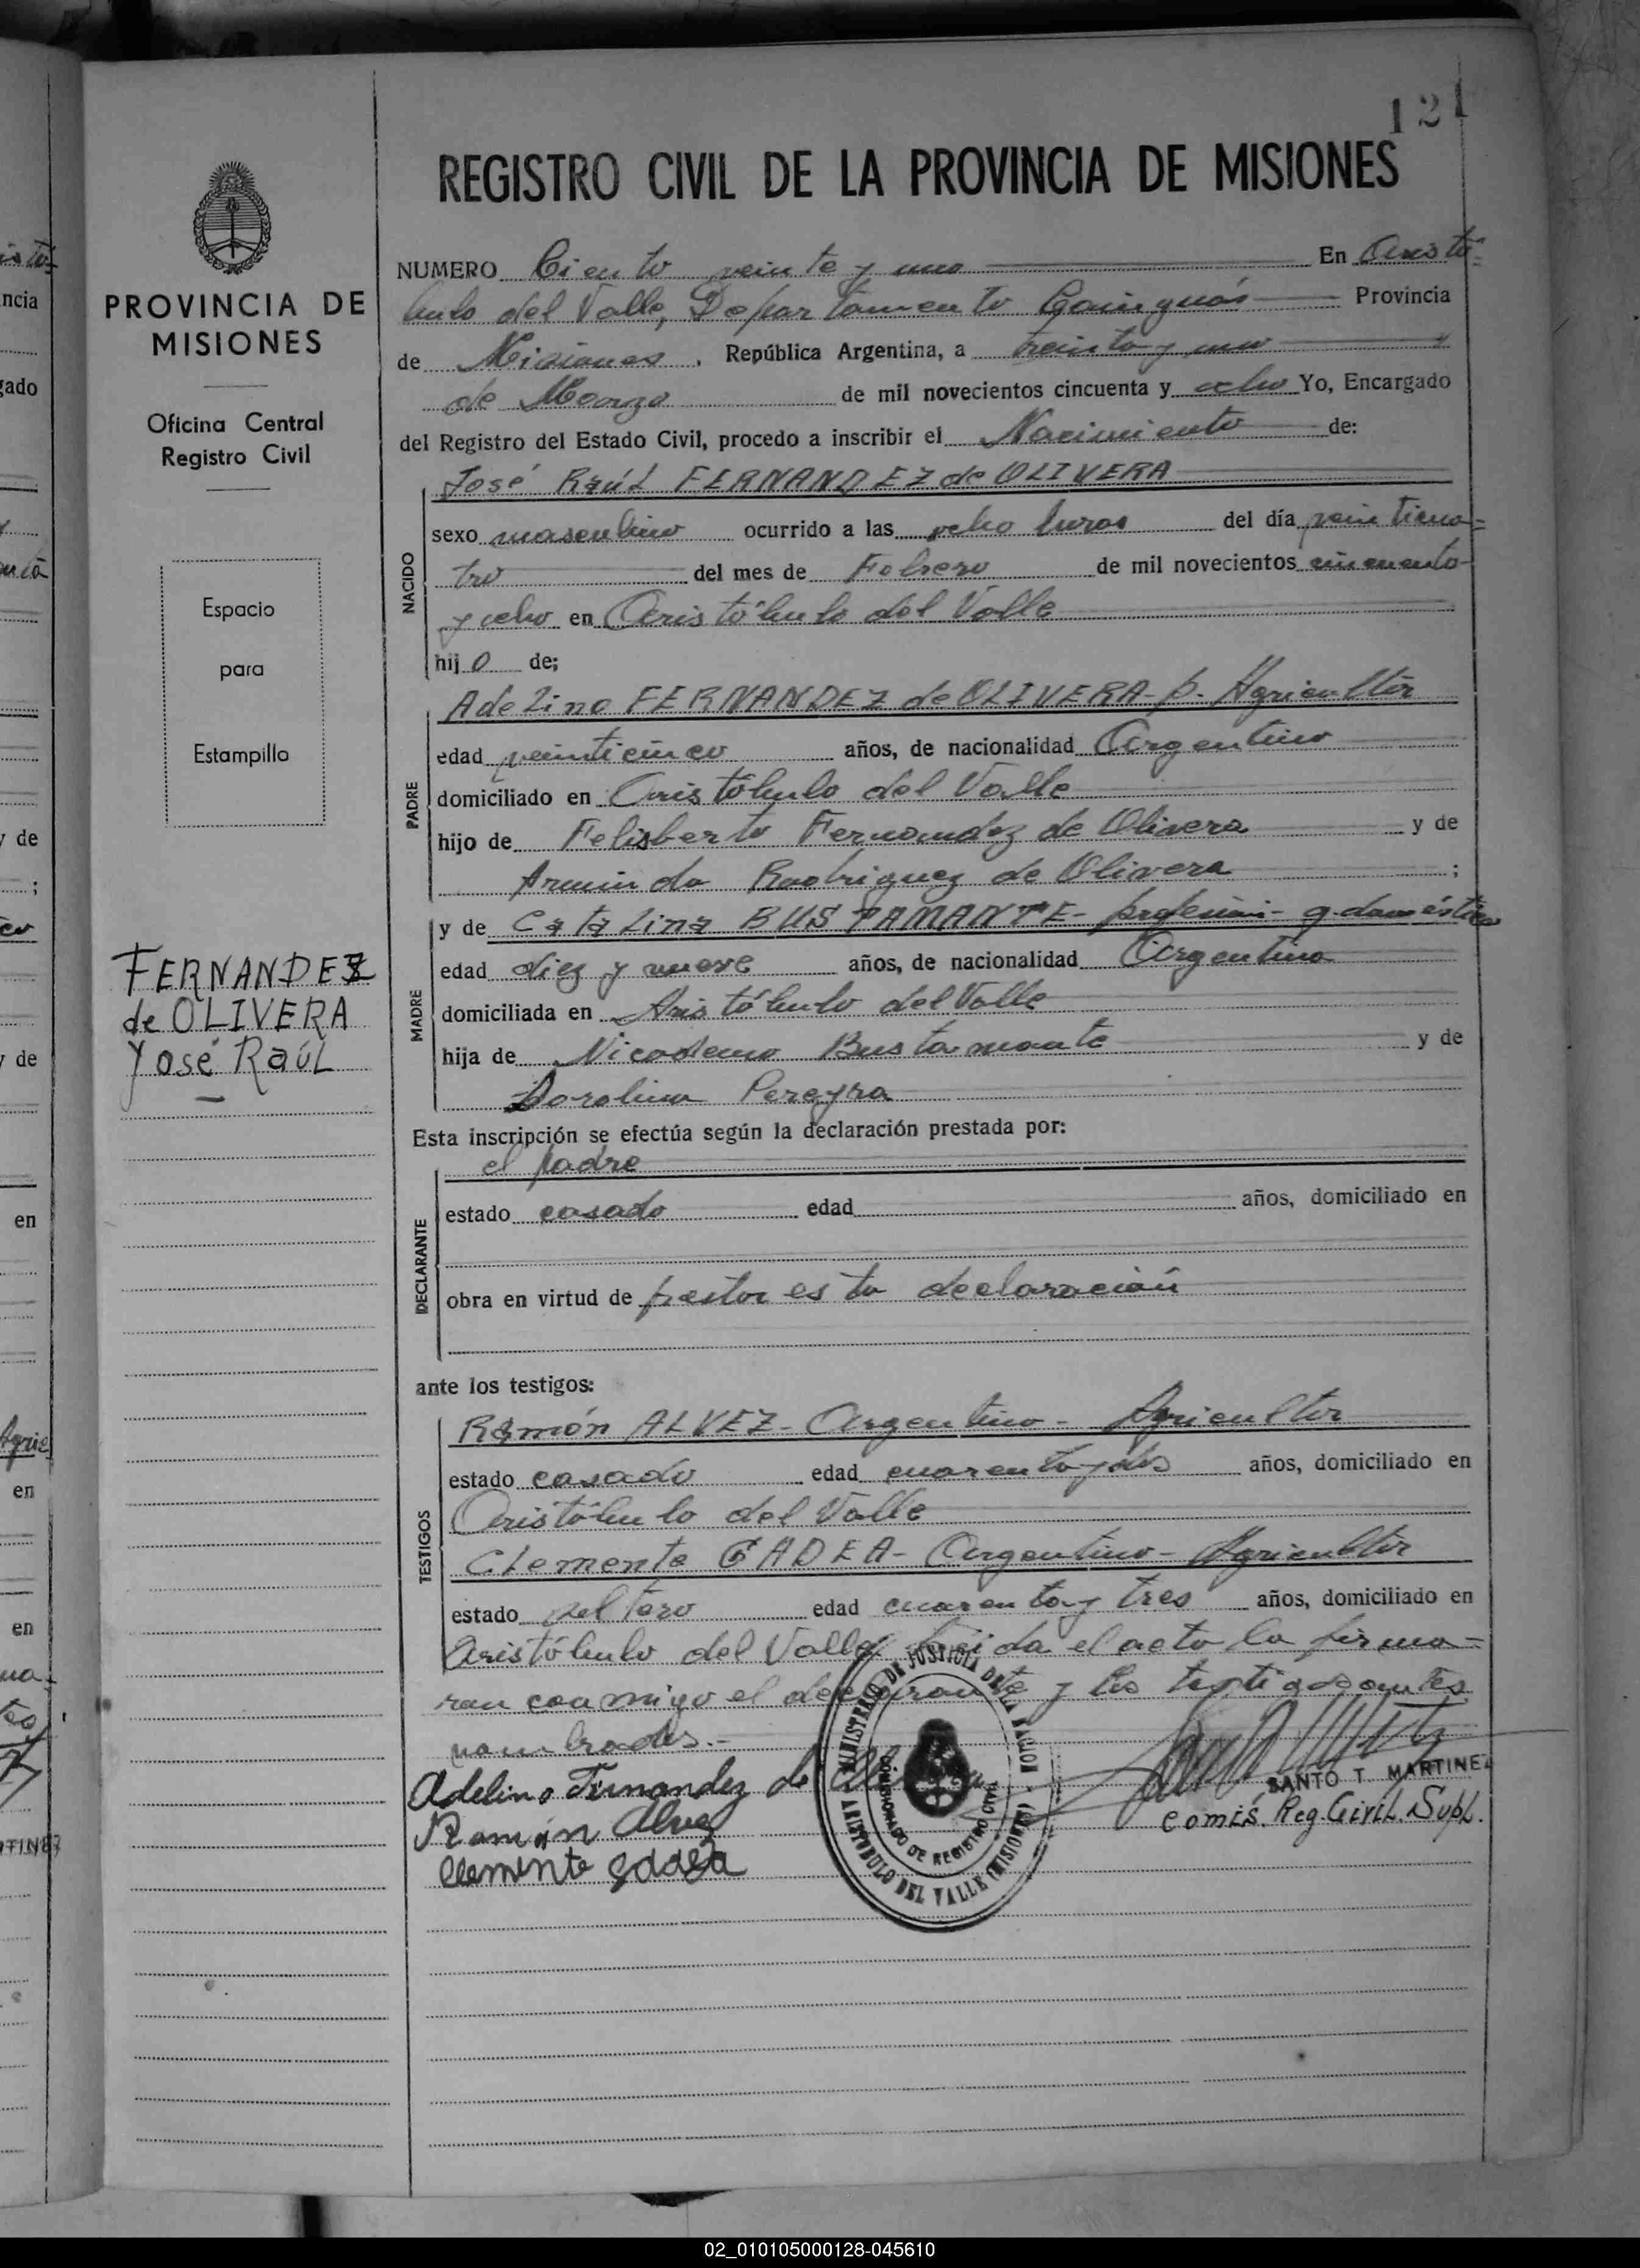 121
REGISTRO CIVIL DE LA PROVINCIA DE MISIONES
PROVINCIA DE
MISIONES
Oficina Central
Registro Civil
Espacio
para
Estampilla
FERNANDEZ
de OLIVERA
José Raúl
NUMERO Ciento veinte y uno En Aristó=
bulo del Valle, Departamento Cainguás Provincia
de Misiones, República Argentina, a treinta y uno
de Marzo de mil novecientos cincuenta y ocho Yo, Encargado
del Registro del Estado Civil, procedo a inscribir el Nacimiento de:
NACIDO
José Raúl FERNANDEZ de OLIVERA
sexo masculino ocurrido a las ocho horas del día veinticua=
tro del mes de Febrero de mil novecientos cincuenta
y ocho en Aristóbulo del Valle
hijo de;
PADRE
Adelino FERNANDEZ de OLIVERA - p. Agricultor
edad veinticinco años, de nacionalidad Argentino
domiciliado en Aristóbulo del Valle
hijo de Felisberto Fernandez de Olivera y de
Arminda Rodriguez de Olivera ;
MADRE
y de Catalina BUSTAMANTE - profesión - q. doméstico
edad diez y nueve años, de nacionalidad Argentina
domiciliada en Aristóbulo del Valle
hija de Nicodemo Bustamante y de
Dorolina Pereyra
Esta inscripción se efectúa según la declaración prestada por:
DECLARANTE
el padre
estado casado edad años, domiciliado en
obra en virtud de prestar esta declaración
ante los testigos:
TESTIGOS
Ramón ALVEZ - Argentino - Agricultor
estado casado edad cuarenta y dos años, domiciliado en
Aristóbulo del Valle
Clemente GADEA - Argentino - Agricultor
estado soltero edad cuarenta y tres años, domiciliado en
Aristóbulo del Valle. Leida el acta la firma=
ran conmigo el declarante y los testigos antes
nombrados.-
Adelino Fernandez de
Ramón Alvez
Clemente gadea
MINISTERIO DE JUSTICIA DE LA NACION
DE REGISTRO CIVIL
ARISTOBULO DEL VALLE (MISIONES)
SANTO T. MARTINEZ
Comis. Reg. Civil. Supl.
02_010105000128-045610